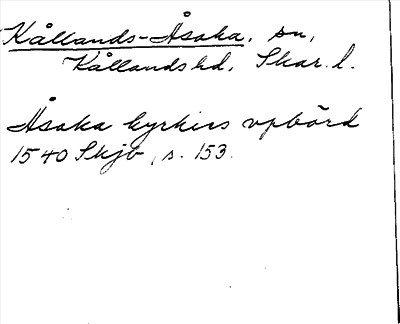 Kållands-Åsaka, sn,
Kållands hd, Skar. l.
Åsaka kyrkies vpbörd
1540 Skjb, s. 153.